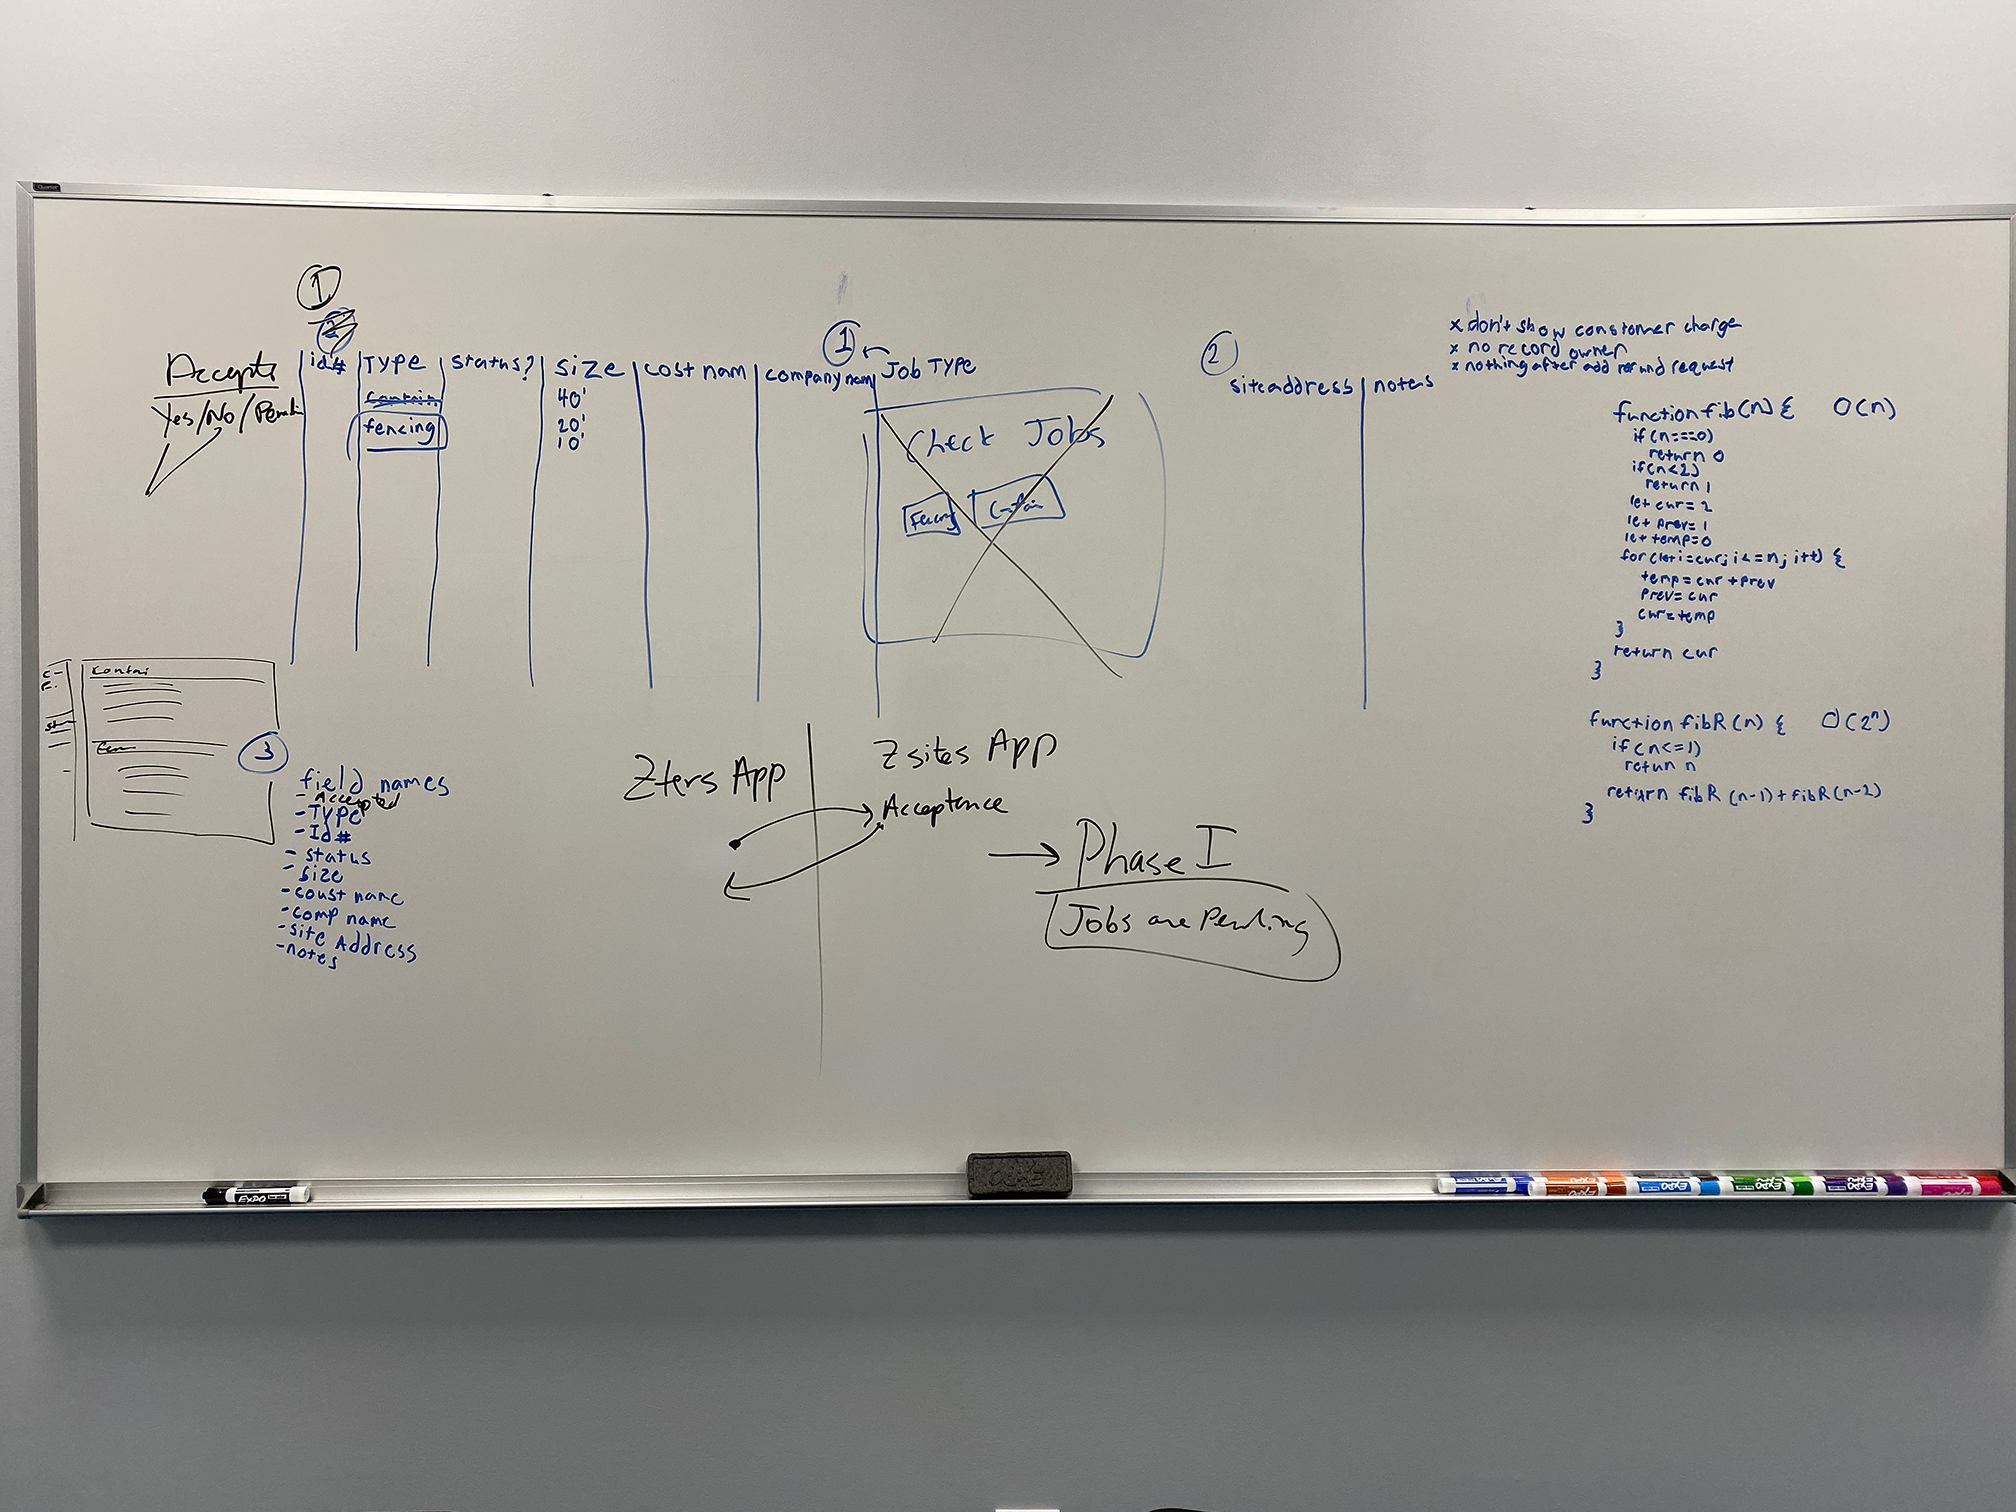 ①
2
Accepts
Yes/No/Pendin
id#
TYPE
contain
fencing
status?
size
40'
20'
10'
cost nam
company nam
①
Job TYPE
Check Jobs
Fencing
Contain
②
site address
notes
x don't show constomer charge
x no record owner
x nothing after add refund request
function fib(n) { O(n)
if (n===0)
return 0
if(n<2)
return 1
let cur = 2
let prev = 1
let temp=0
for(let i=cur; i<=n; i++) {
temp = cur + prev
prev = cur
cur = temp
}
return cur
}
function fibR(n) { O(2ⁿ)
if (n<=1)
return n
return fibR(n-1)+fibR(n-2)
}
Contai
Fen
③
field names
- Accepted
- TYPE
- Id#
- status
- size
- coust name
- comp name
- site Address
- notes
Zters App
Zsites App
Acceptance
Phase I
Jobs are Pending
EXPO
EXPO